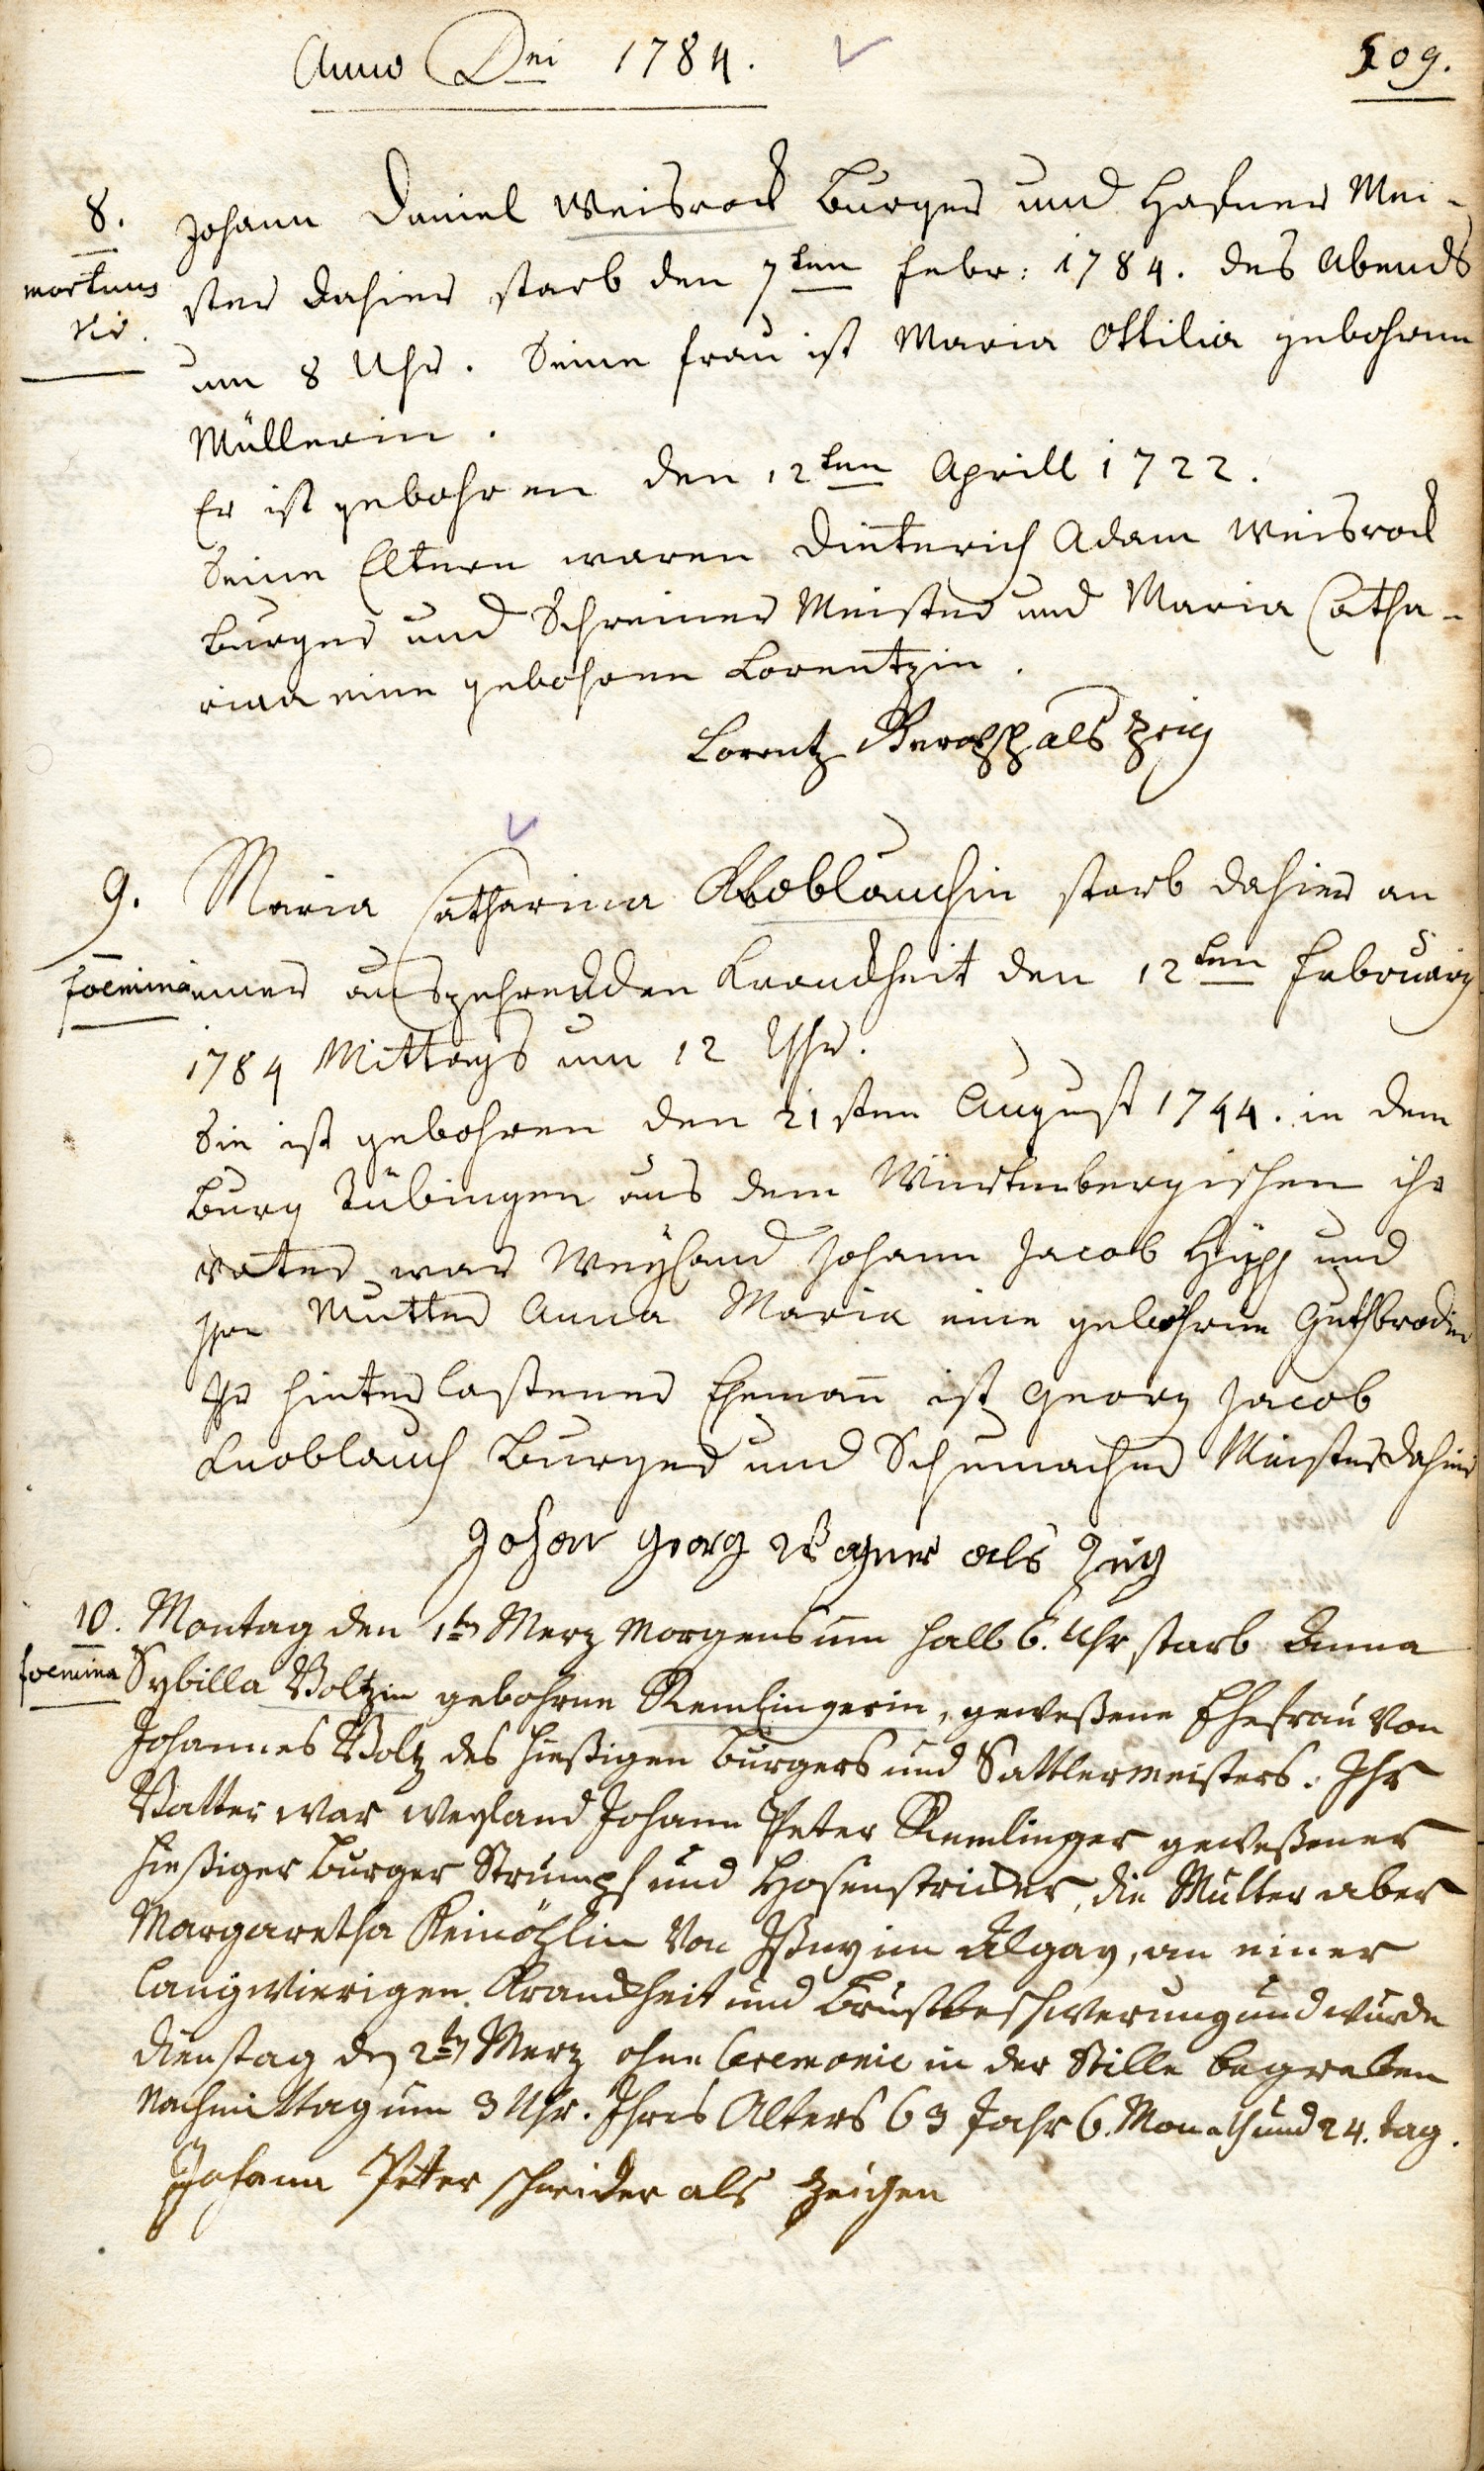 Anno Dni 1784.
509.
8.
mortuus
vir.
Johann Daniel Weisrock Burger und Hafner Mei-
ster dahier starb den 7ten Febr: 1784. des Abends
um 8 Uhr. Seine Frau ist Maria Ottilia gebohrene
Müllerin.
Er ist gebohren den 12ten Aprill 1722.
Seine Eltern waren Dieterich Adam Weisrock
Burger und Schreiner Meister und Maria Catha-
rina eine gebohrene Lorentzin.
Lorentz als Zeig
9.
foemina
Maria Catharina Knoblauchin starb dahier an
einer auszehrenden Kranckheit den 12ten Februarÿ
1784 Mittags um 12 Uhr.
Sie ist gebohren den 21sten August 1744. in dem
Burg Tübingen aus dem Würtenbergischen ihr
vater war Weÿland Johann Jacob und
Ihre Mutter Anna Maria eine gebohrne Guthbrodin
Ihr hinterlastener Ehemann ist Georg Jacob
Knoblauch Burger und Schumacher Meister dahier
Johan Georg Wagner als Zeig
10.
foemina
Montag den 1ten Merz Morgens um halb 6. Uhr starb Anna
Sybilla Voltzin gebohrne Remlingerin, geweßene Ehefrau von
Johannes Voltz des hießigen Burgers und Sattlermeisters. Ihr
Vatter war weyland Johann Peter Remlinger geweßener
hießiger Burger Strumpf und Hosenstricker, die Mutter aber
Margaretha von Ißny im Algay, an einer
langwierigen Kranckheit und Brustbeschwerung und wurde
Dienstag den 2ten Merz ohne Ceremonie in der Stille begraben
Nachmittag um 3 Uhr. Ihres Alters 63 Jahr 6. Monath und 24. tag.
Johann Petter schneider als Zeichen